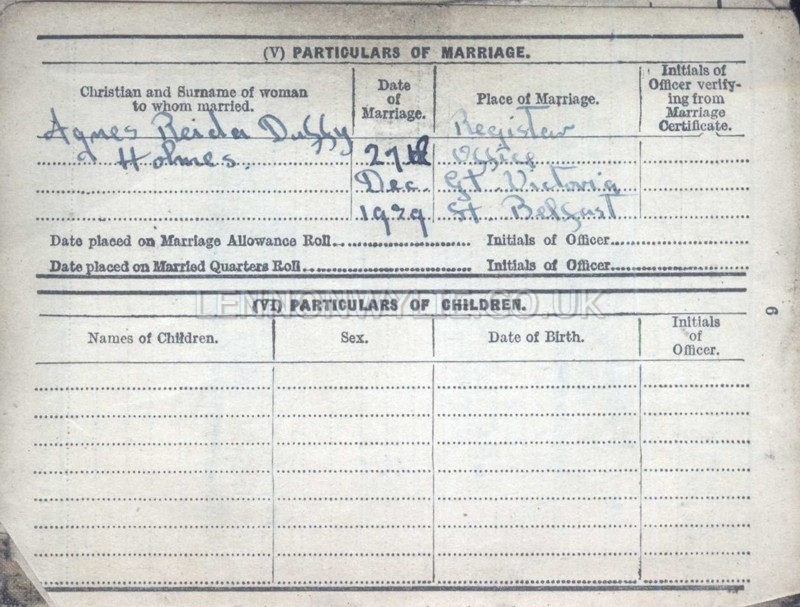 (V) PARTICULARS OF MARRIAGE.
Christian and Surname of woman to whom married.
Date of Marriage.
Place of Marriage.
Initials of Officer verifying from Marriage Certificate.
Agnes Reida Duffy
Holmes.
27th
Dec.
1939
Register
Office
Gt Victoria
St. Belfast
Date placed on Marriage Allowance Roll
Initials of Officer
Date placed on Married Quarters Roll
Initials of Officer
LENNONWYLIE.CO.UK
(VI) PARTICULARS OF CHILDREN.
Names of Children.
Sex.
Date of Birth.
Initials of Officer.
9